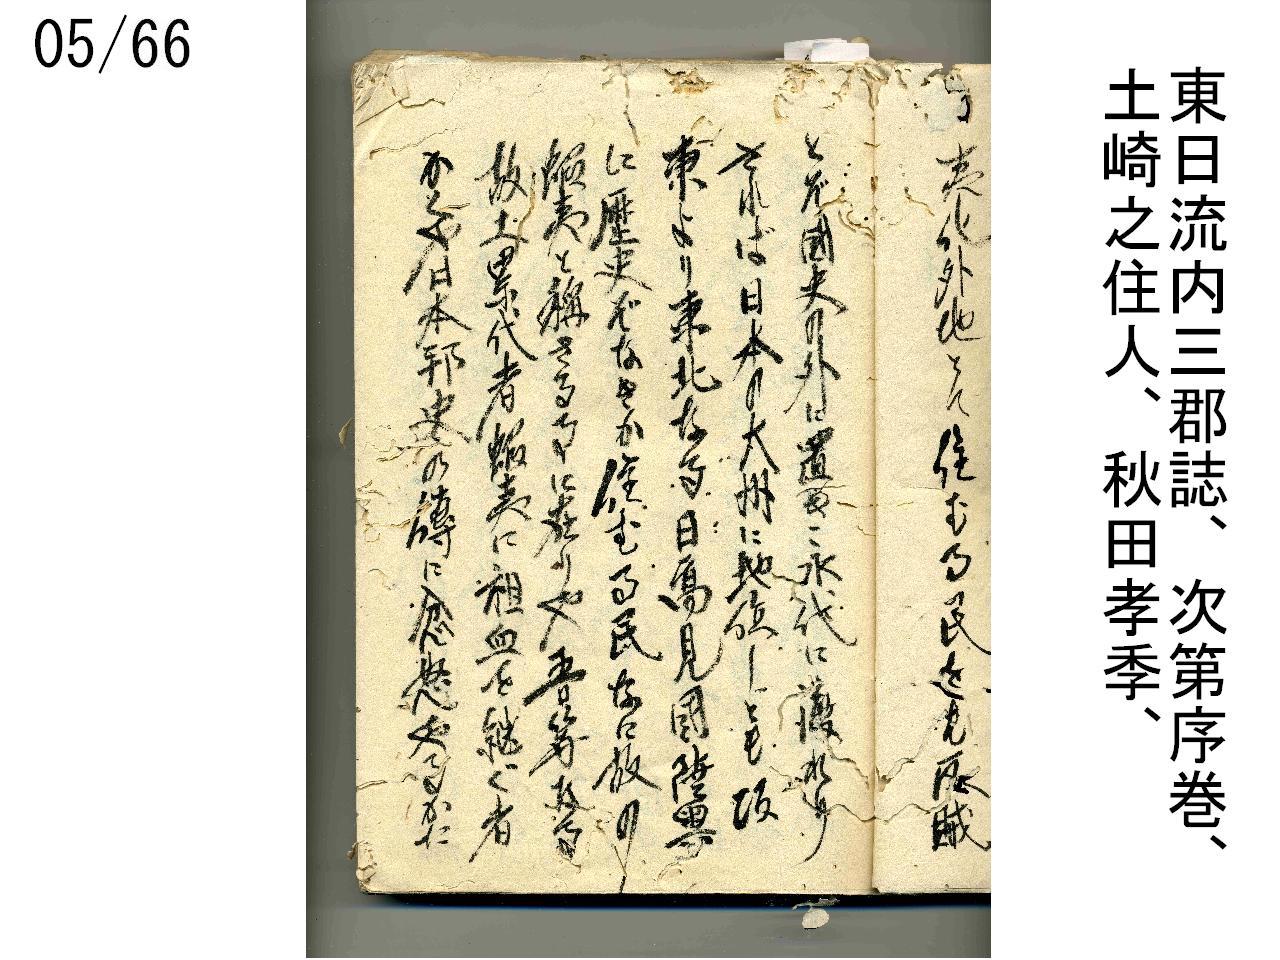 05/66
東日流内三郡誌、次第序巻、
土崎之住人、秋田孝季、
夷化外地とて住むる民をも仄賊
とぞ國史の外に置き永代に蔑れり
されば日本の大州に地領しとも坂
東より東北なる日高見國陸奥
に歴史ぞなきか住むる民なに故の
蝦夷と称さるゝに在りや吾等な
故土累代者蝦夷に祖血を継ぐ者
かゝる日本邦史の